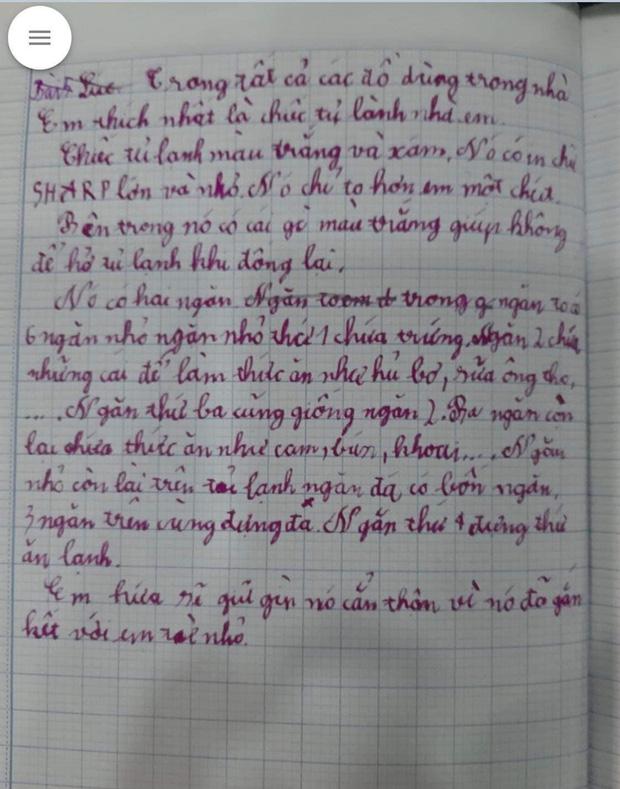 Trong tất cả các đồ dùng trong nhà
Em thích nhất là chiếc tủ lành nhà em.
Chiếc tủ lanh màu trắng và xám. Nó có in chữ
SHARP lớn và nhỏ. Nó chỉ to hơn em một chút.
Bên trong nó có cái gờ màu trắng giúp không
để hở tủ lạnh khi đông lại.
Nó có hai ngăn. Ngăn trong ngăn to có
6 ngăn nhỏ ngăn nhỏ thứ 1 chứa trứng. Ngăn 2 chứa
những cái để làm thức ăn như hủ bơ, sữa ông thọ,
.... Ngăn thứ ba cũng giống ngăn 2. Ba ngăn còn
lại chứa thức ăn như cam, bún, khoai.... Ngăn
nhỏ còn lại trên tủ lanh ngăn đá có bốn ngăn,
3 ngăn trên cùng đựng đá. Ngăn thứ 4 đựng thứ
ăn lanh.
Em hứa sẽ giữ gìn nó cẩn thận vì nó đã gắn
kết với em từ nhỏ.